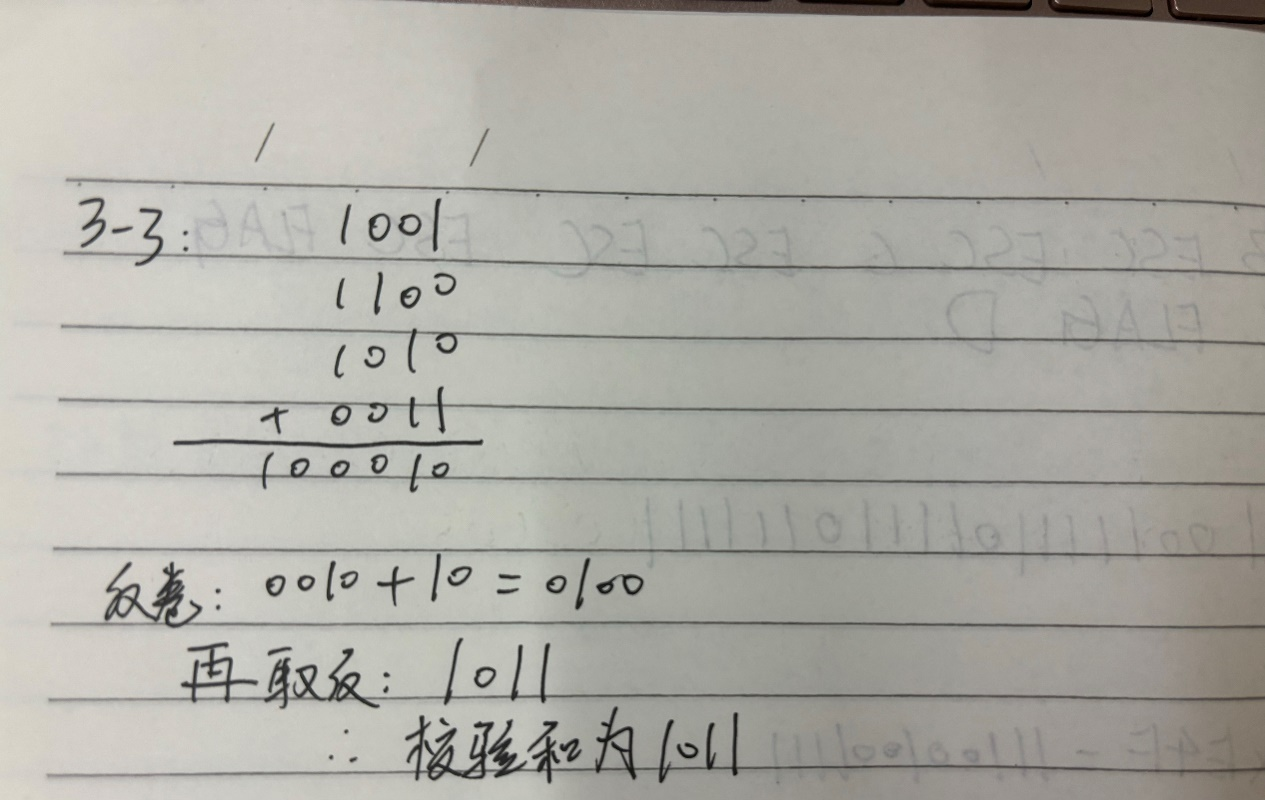 3-3: 1001
1100
1010
+ 0011
100010
反卷: 0010 + 10 = 0100
再取反: 1011
∴ 校验和为1011